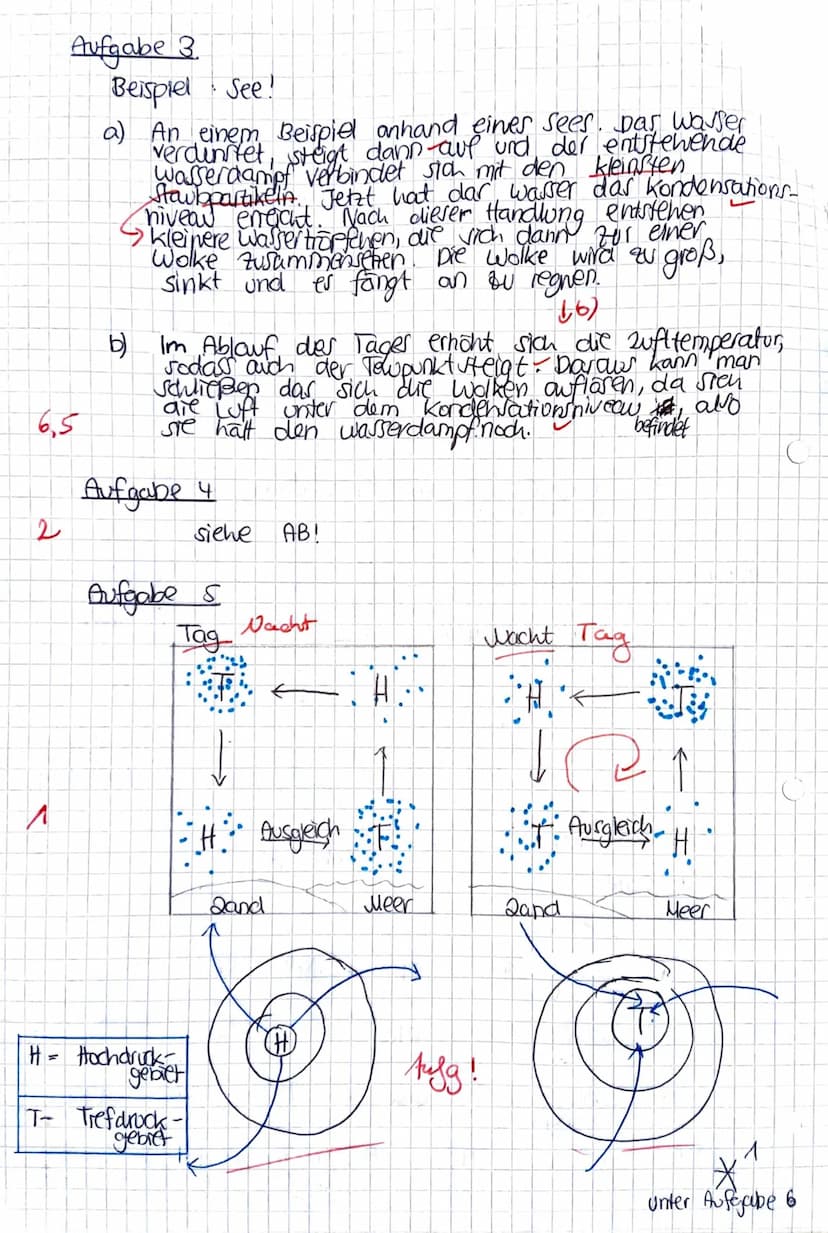 Aufgabe 3.
Beispiel : See!
a) An einem Beispiel anhand eines Sees. Das Wasser
verdunstet, steigt dann auf und der entstehende
Wasserdampf verbindet sich mit den kleinsten
Staubpartikeln. Jetzt hat das Wasser das Kondensations-
niveau erreicht. Nach dieser Handlung entstehen
kleinere Wassertröpfchen, die sich dann zur einer
Wolke zusammensetzen. Die Wolke wird zu groß,
sinkt und es fängt an zu regnen.
b)
b) Im Ablauf des Tages erhöht sich die Lufttemperatur,
sodass auch der Taupunkt steigt. Daraus kann man
schließen das sich die Wolken auflösen, da sich
die Luft unter dem Kondensationsniveau, also
befindet
6,5 sie hält den Wasserdampf noch.
Aufgabe 4
2 siehe AB!
Aufgabe 5
Tag Nacht
Nacht Tag
T H
H T
1
H Ausgleich T
T Ausgleich H
Land Meer
Land Meer
H
T
H = Hochdruck-
gebiet
T- Tiefdruck-
gebiet
Aufg!
* 1
unter Aufgabe 6